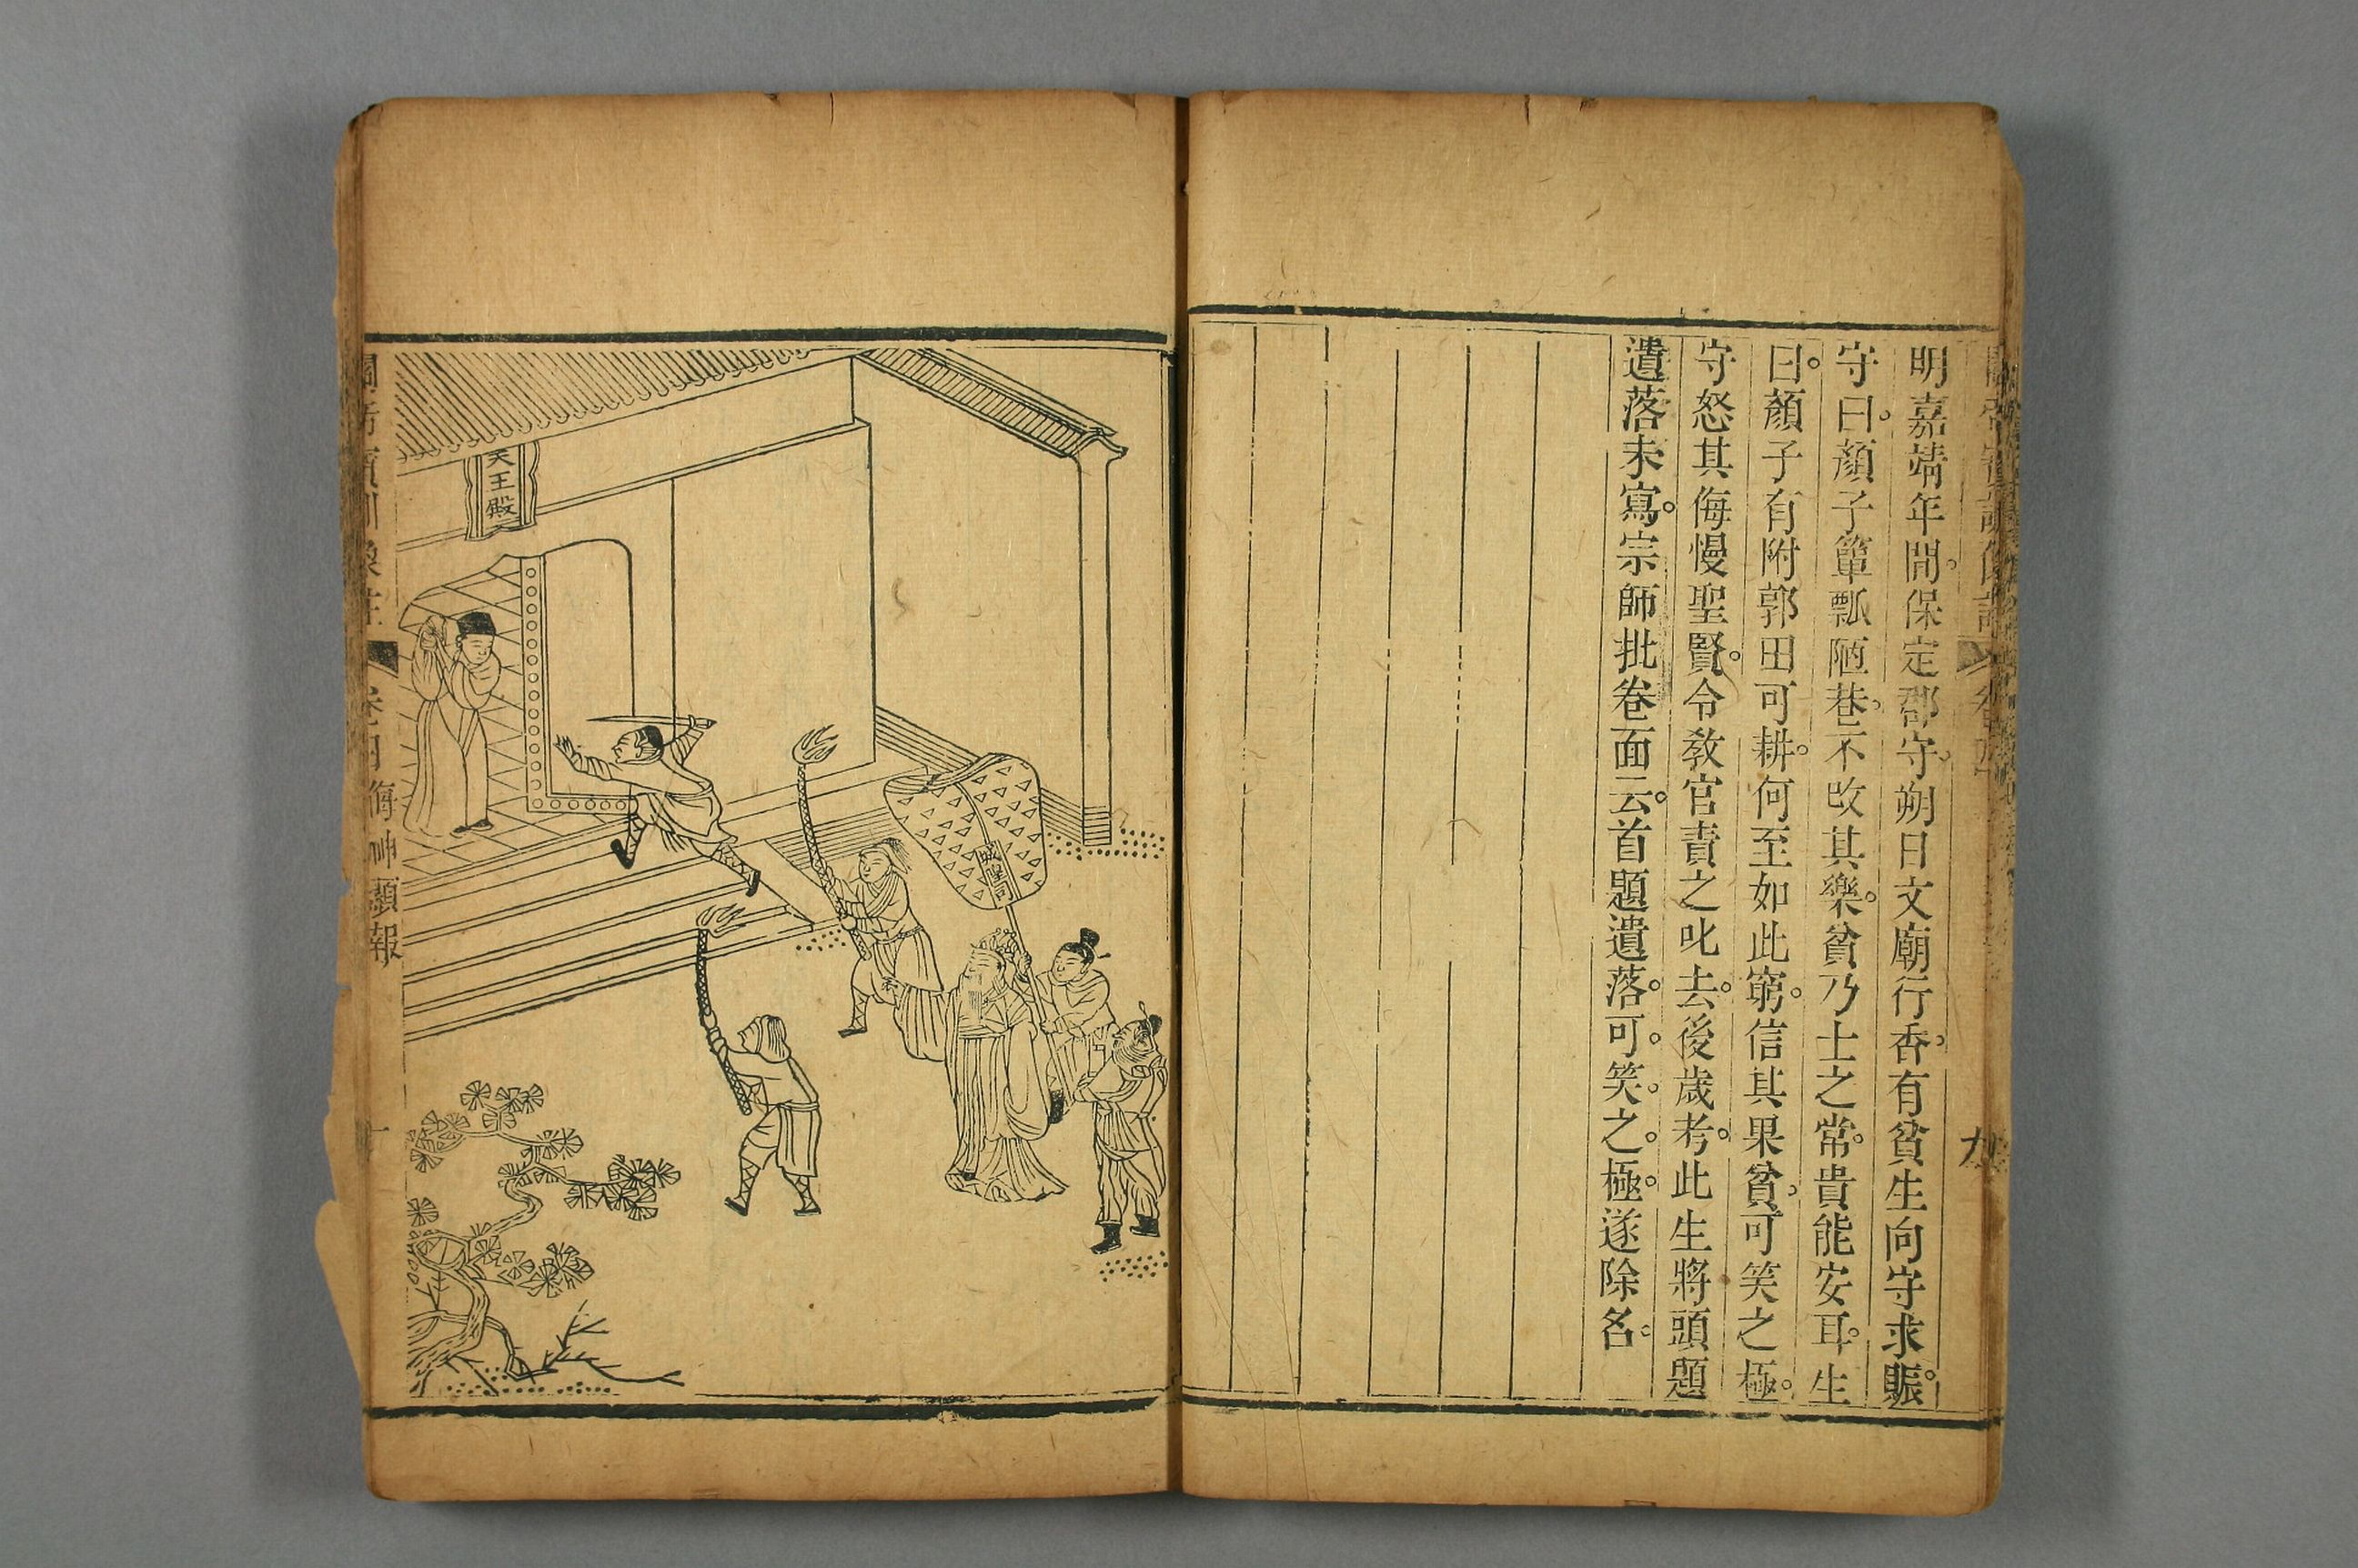 明嘉靖年間保定郡守朔日文廟行香有貧生向守求賑
守曰顏子簞瓢陋巷不改其樂貧乃士之常貴能安耳生
曰顏子有附郭田可耕何至如此窮信其果貧可笑之極
守怒其侮慢聖賢令敎官責之叱去後歲考此生將頭題
遺落未寫宗師批卷面云首題遺落可笑之極遂除名
九
天王殿
城隍司
侮神顯報